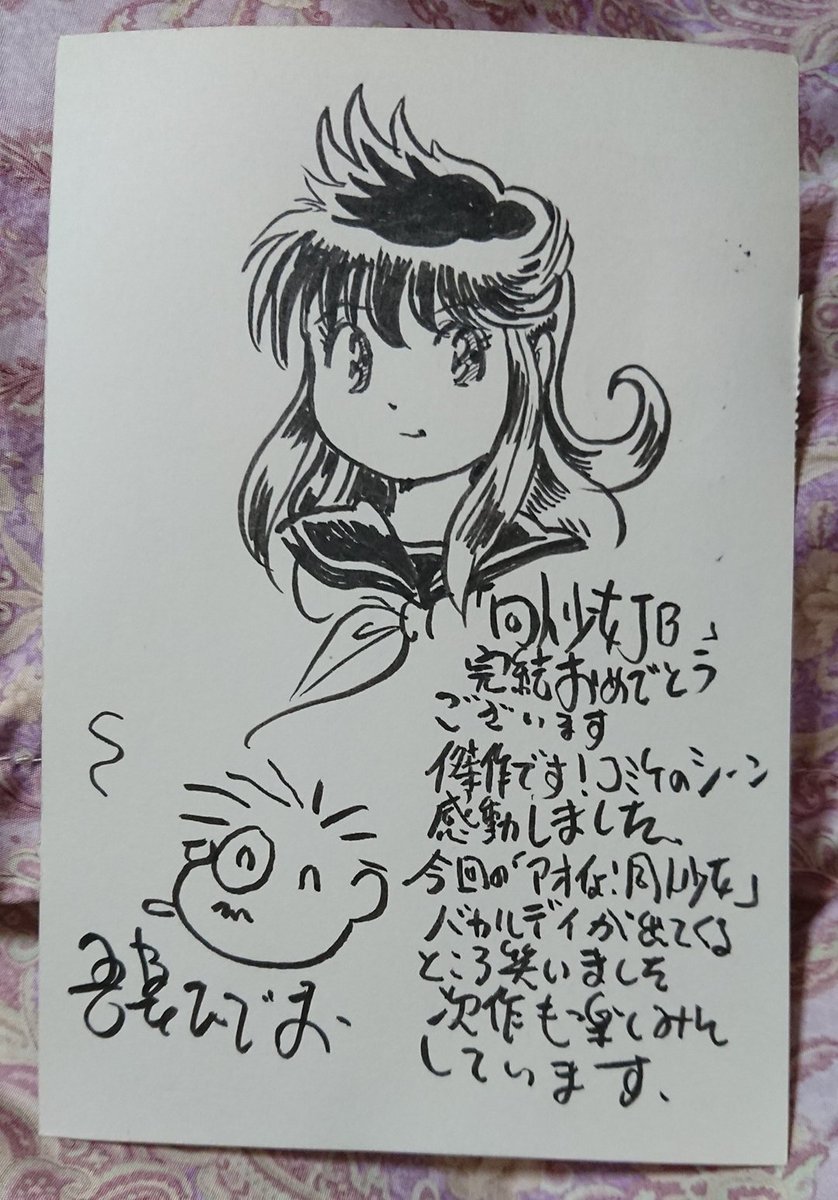 「同人少女JB」
完結おめでとう
ございます
傑作です!コミケのシーン
感動しました、
今回の「アオいな!同人少女」
バカルディが出てくる
ところ笑いました
次作も楽しみに
しています、
吾妻ひでお